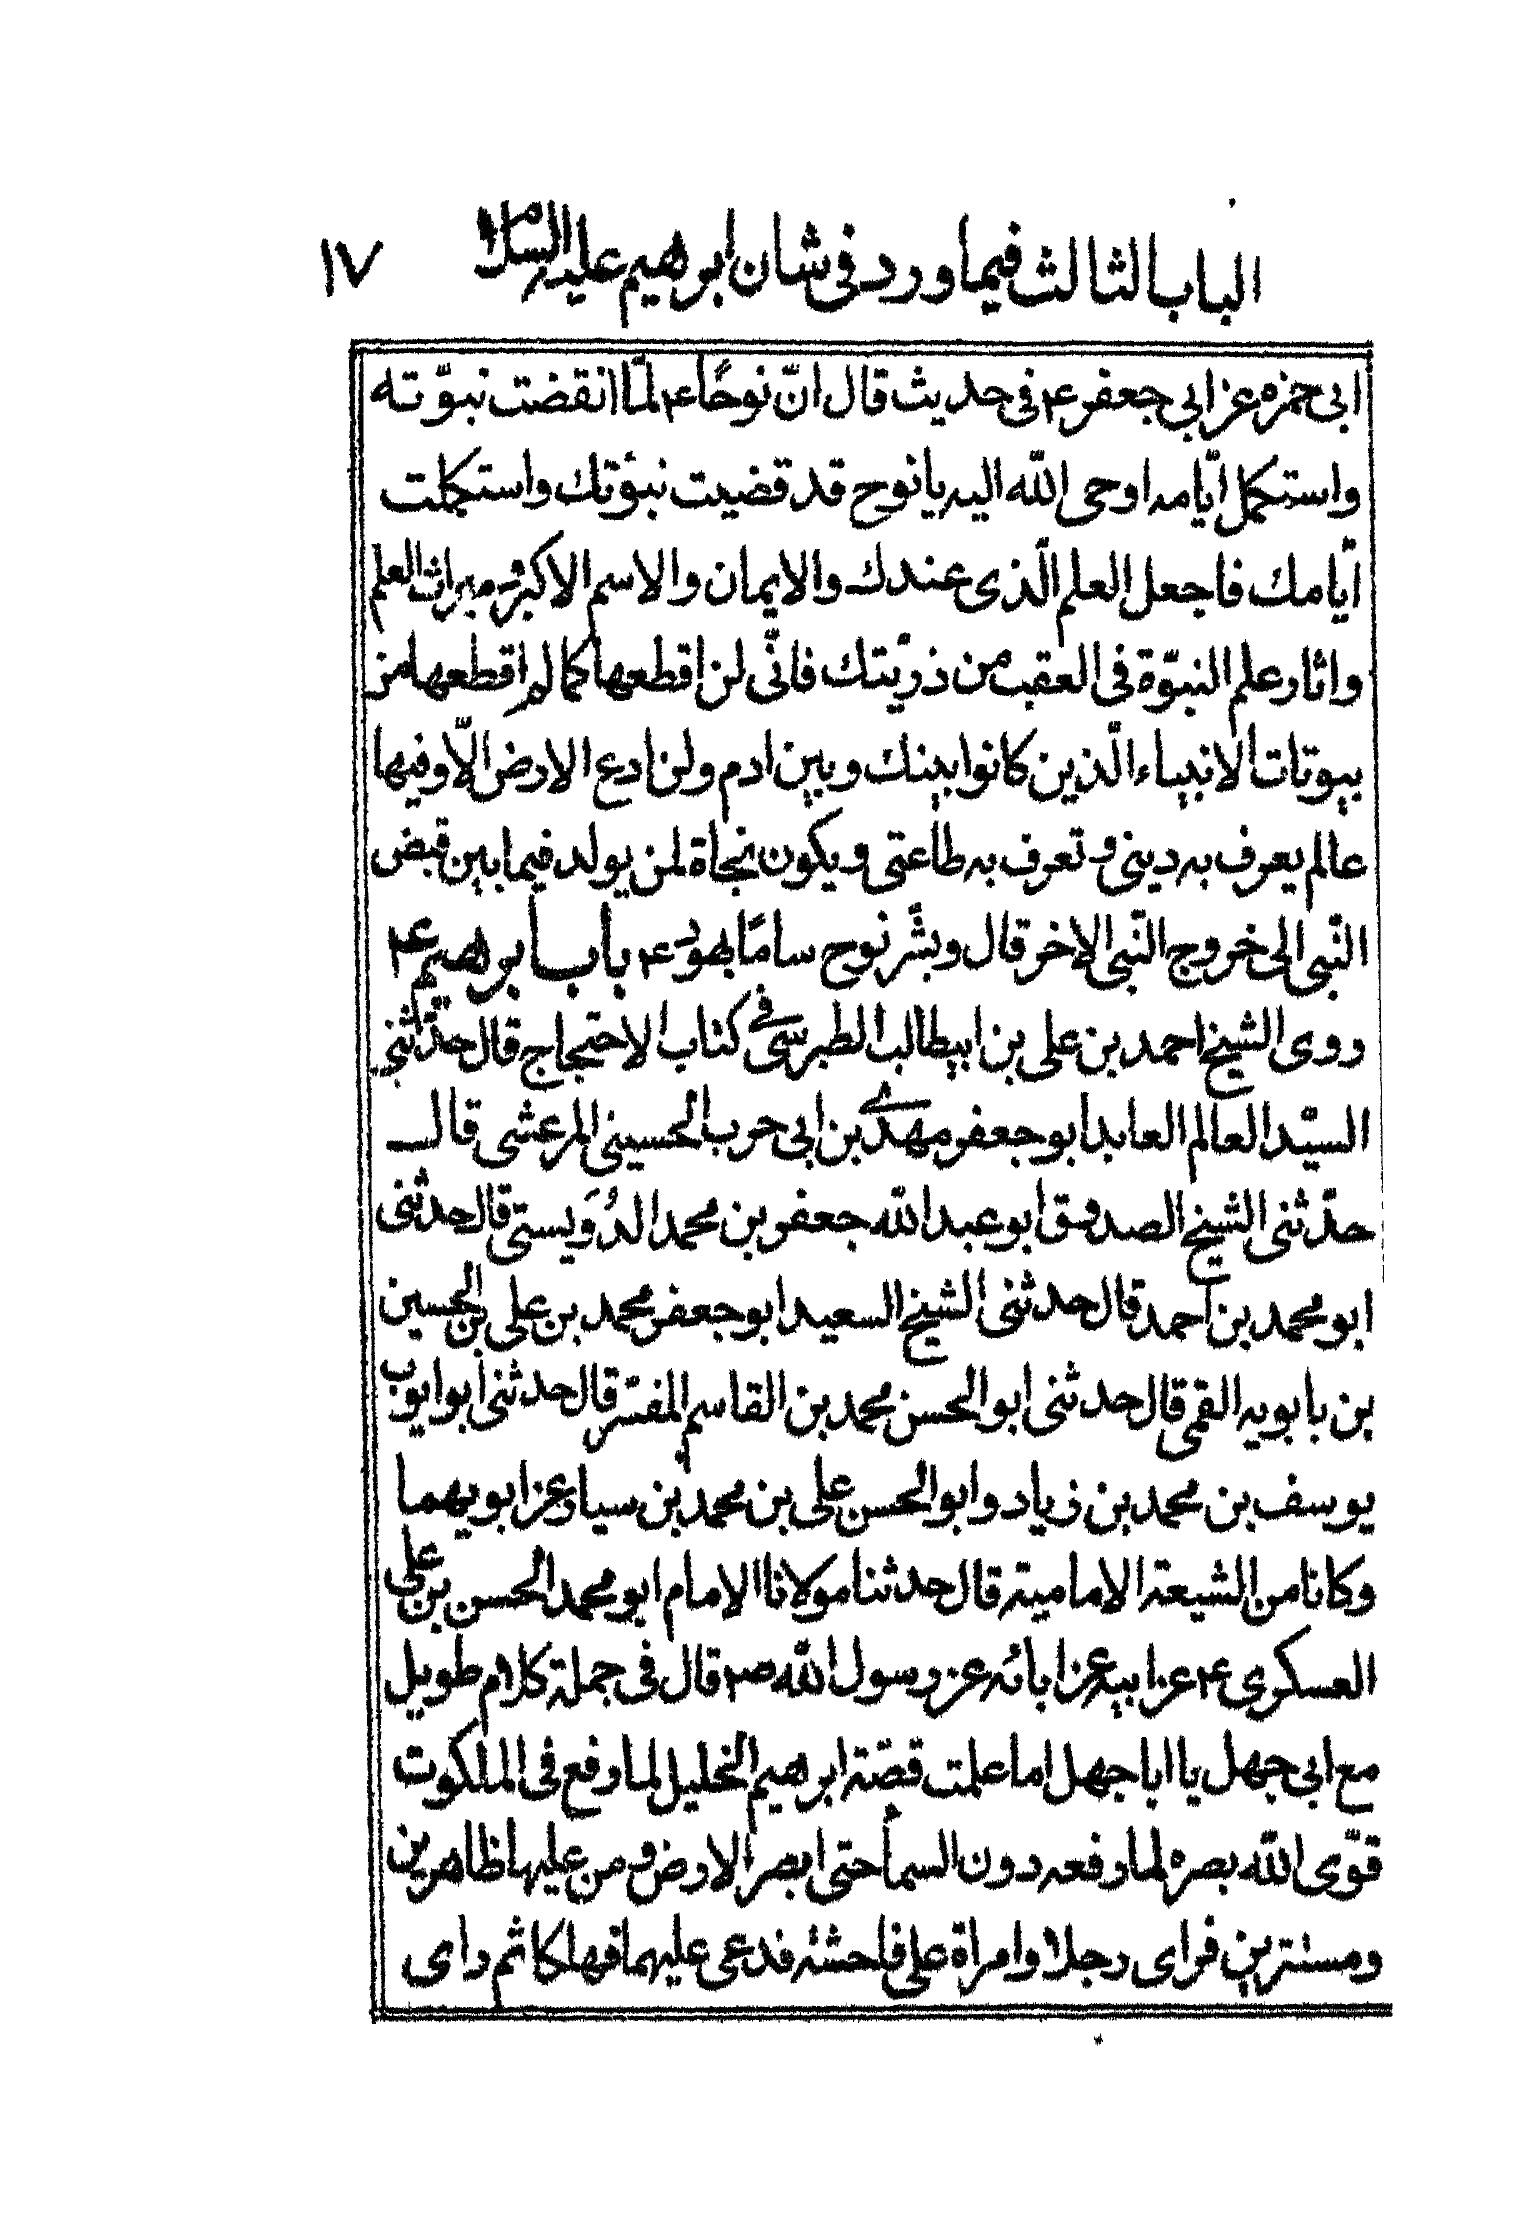 الباب الثالث فيما ورد فى شان ابرهيم عليه السلام ١٧
ابى حمزه عن ابى جعفر ع فى حديث قال انّ نوحًا ع لمّا انقضت نبوّته
واستكمل ايّامه اوحى اللّه اليه يا نوح قد قضيت نبوّتك واستكملت
ايّامك فاجعل العلم الّذى عندك والايمان والاسم الاكبر وميراث العلم
واثار علم النبوّة فى العقب من ذريّتك فانّى لن اقطعها كما لم اقطعها من
بيوتات الانبياء الّذين كانوا بينك وبين ادم ولن ادع الارض الّا وفيها
عالم يعرف به دينى وتعرف به طاعتى ويكون نجاة لمن يولد فيما بين قبض
النّبى الى خروج النّبى الاخر قال وبشّر نوح سامًا بهود ع باب ابرهيم ع
روى الشيخ احمد بن على بن ابيطالب الطبرسى فى كتاب الاحتجاج قال حدّثنى
السيّد العالم العابد ابو جعفر مهدى بن ابى حرب الحسينى المرعشى قال
حدّثنى الشيخ الصدوق ابو عبد اللّه جعفر بن محمد الدُوَيستى قال حدثنى
ابو محمد بن احمد قال حدثنى الشيخ السعيد ابو جعفر محمد بن على بن الحسين
بن بابويه القمى قال حدثنى ابو الحسن محمد بن القاسم المفسّر قال حدثنى ابو ايوب
يوسف بن محمد بن زياد وابو الحسن على بن محمد بن سيار عن ابويهما
وكانا من الشيعة الامامية قال حدثنا مولانا الامام ابو محمد الحسن بن على
العسكرى ع عن ابيه عن ابائه عن رسول اللّه ص قال فى جملة كلام طويل
مع ابى جهل يا ابا جهل اما علمت قصّة ابرهيم الخليل لما رفع فى الملكوت
قوّى اللّه بصره لما رفعه دون السماء حتى ابصر الارض ومن عليها ظاهرين
ومستترين فراى رجلا وامراة على فاحشة فدعى عليهما فهلكا ثم راى